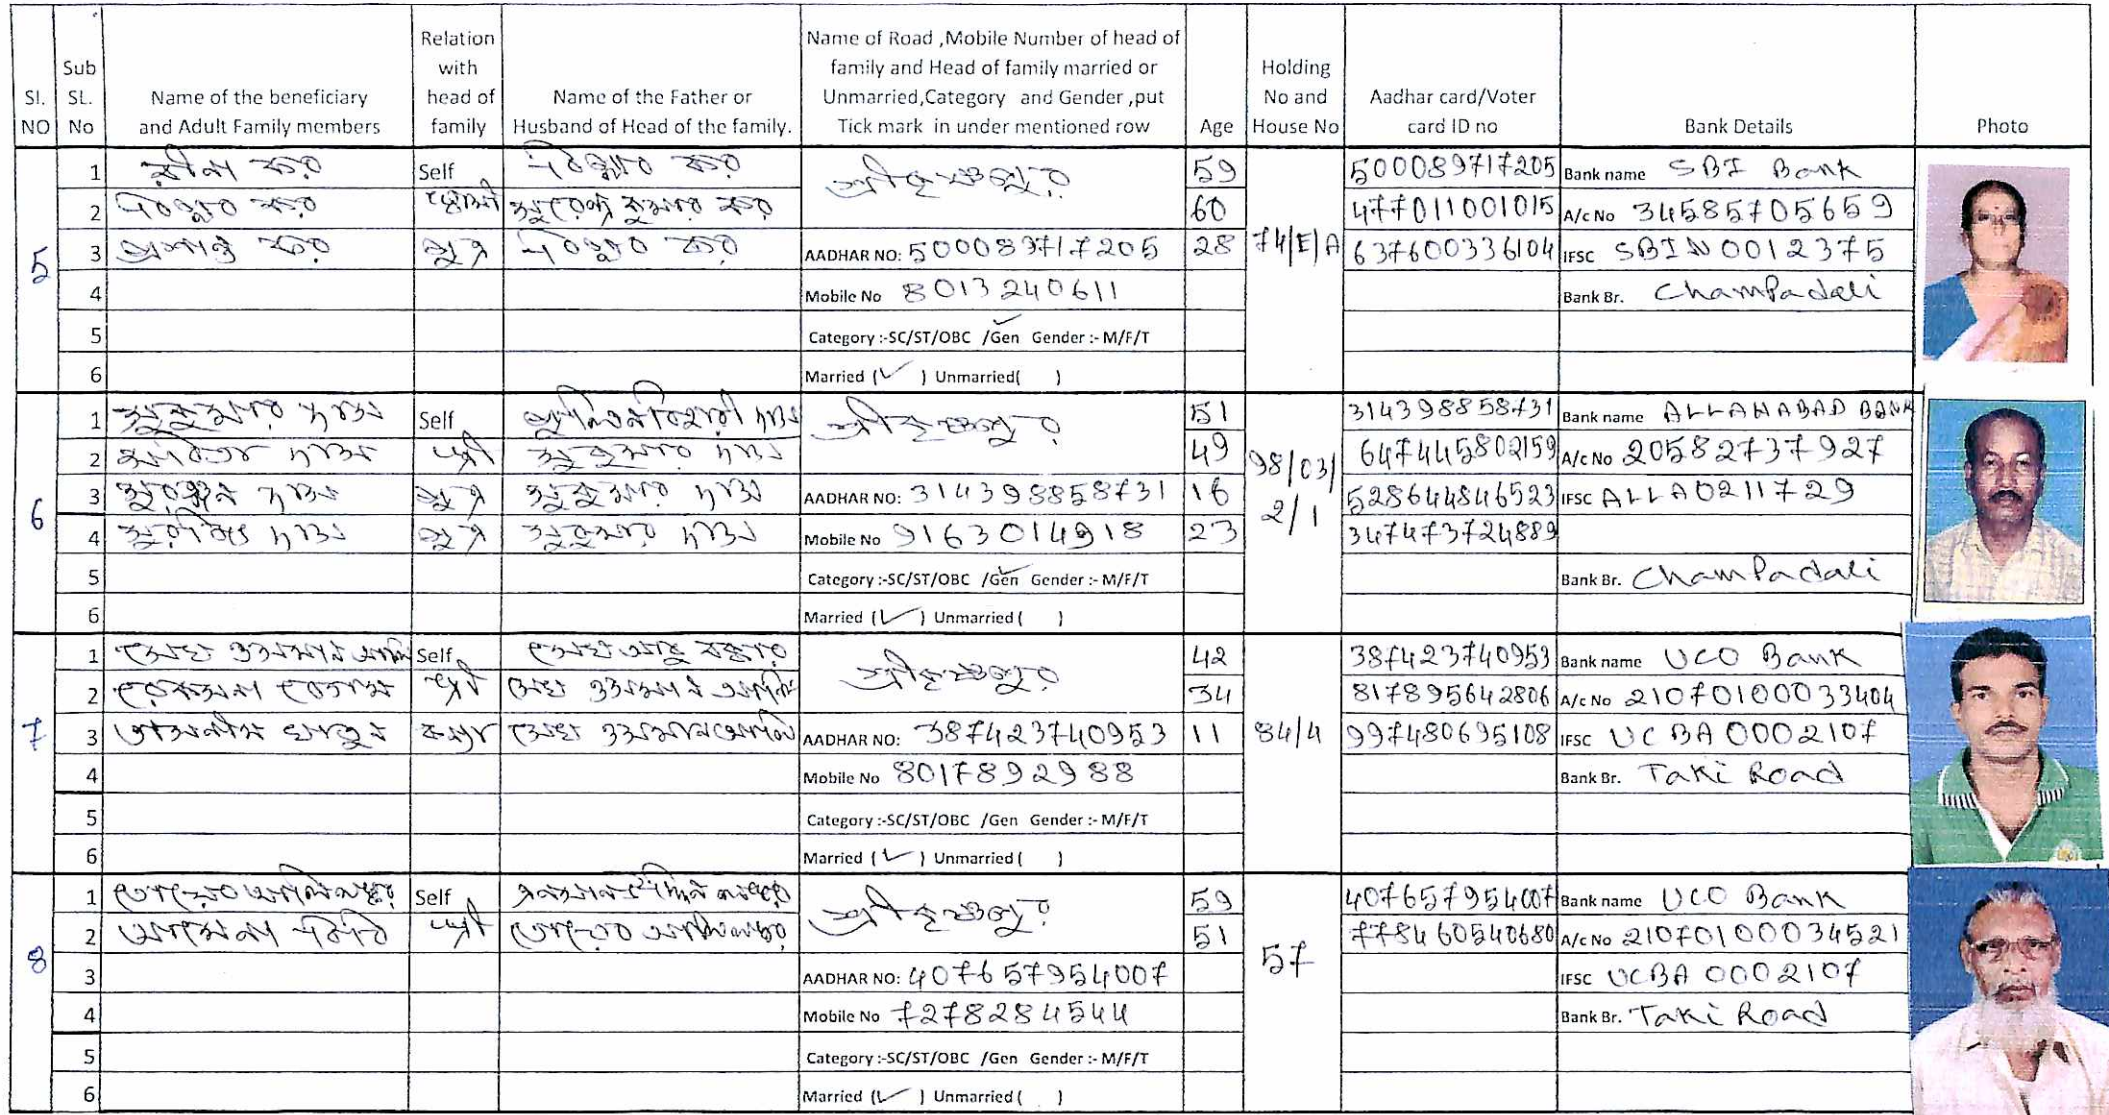 Sl. NO
Sub SL. No
Name of the beneficiary and Adult Family members
Relation with head of family
Name of the Father or Husband of Head of the family.
Name of Road ,Mobile Number of head of family and Head of family married or Unmarried,Category and Gender ,put Tick mark in under mentioned row
Age
Holding No and House No
Aadhar card/Voter card ID no
Bank Details
Photo
5
1 কর Self কর শ্রীকৃষ্ণপুর 59 500089717205 Bank name SBI Bank
2 কর স্বামী কুমার কর 60 477011001015 A/c No 34585705659
3 প্রশান্ত কর পুত্র কর AADHAR NO: 500089717205 28 74/E/A 637600336104 IFSC SBIN0012375
4 Mobile No 8013240611 Bank Br. Champadali
5 Category :-SC/ST/OBC /Gen ✓ Gender :- M/F/T
6 Married (✓) Unmarried( )
6
1 সুকুমার দাস Self পুলিনবিহারী দাস শ্রীকৃষ্ণপুর 51 314398858731 Bank name ALLAHABAD BANK
2 সবিতা দাস স্ত্রী সুকুমার দাস 49 98/03/2/1 647445802159 A/c No 20582737927
3 দাস পুত্র সুকুমার দাস AADHAR NO: 314398858731 16 528644846523 IFSC ALLA0211729
4 দাস পুত্র সুকুমার দাস Mobile No 9163014918 23 347473724889
5 Category :-SC/ST/OBC /Gen ✓ Gender :- M/F/T Bank Br. Champadali
6 Married (✓) Unmarried ( )
7
1 সেখ ওসমান আলি Self সেখ শ্রীকৃষ্ণপুর 42 387423740953 Bank name UCO Bank
2 রোকসানা বেগম স্ত্রী সেখ ওসমান আলি 34 817895642806 A/c No 21070100033404
3 খাতুন কন্যা সেখ ওসমান আলি AADHAR NO: 387423740953 11 84/4 997480695108 IFSC UCBA0002107
4 Mobile No 8017892988 Bank Br. Taki Road
5 Category :-SC/ST/OBC /Gen Gender :- M/F/T
6 Married (✓) Unmarried ( )
8
1 আলি Self শ্রীকৃষ্ণপুর 59 407657954007 Bank name UCO Bank
2 বিবি স্ত্রী আলি 51 778460540680 A/c No 21070100034521
3 AADHAR NO: 407657954007 57 IFSC UCBA0002107
4 Mobile No 7278284544 Bank Br. Taki Road
5 Category :-SC/ST/OBC /Gen Gender :- M/F/T
6 Married (✓) Unmarried ( )